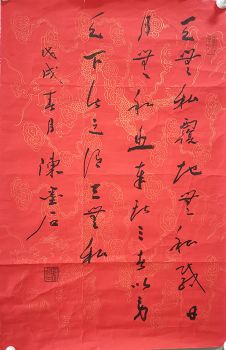 天無私覆地無私載日
月無私照奉斯三者以勞
天下此之謂三無私
戊戌春月陳石